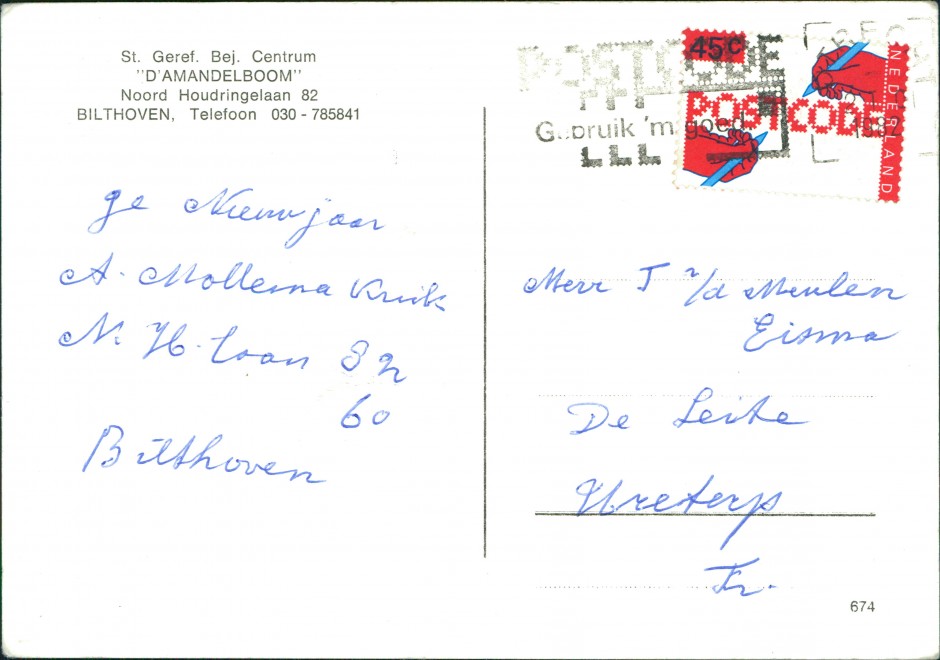 St. Geref. Bej. Centrum
"D'AMANDELBOOM"
Noord Houdringelaan 82
BILTHOVEN, Telefoon 030 - 785841
ge Nieuwjaar
A. Mollema Kruik
N. H. laan 82
60
Bilthoven
POSTCODE
Gebruik 'm goed
1982
45c
POSTCODE
NEDERLAND
Mevr T v/d Meulen
Eisma
De Leite
Ureterp
Fr.
674